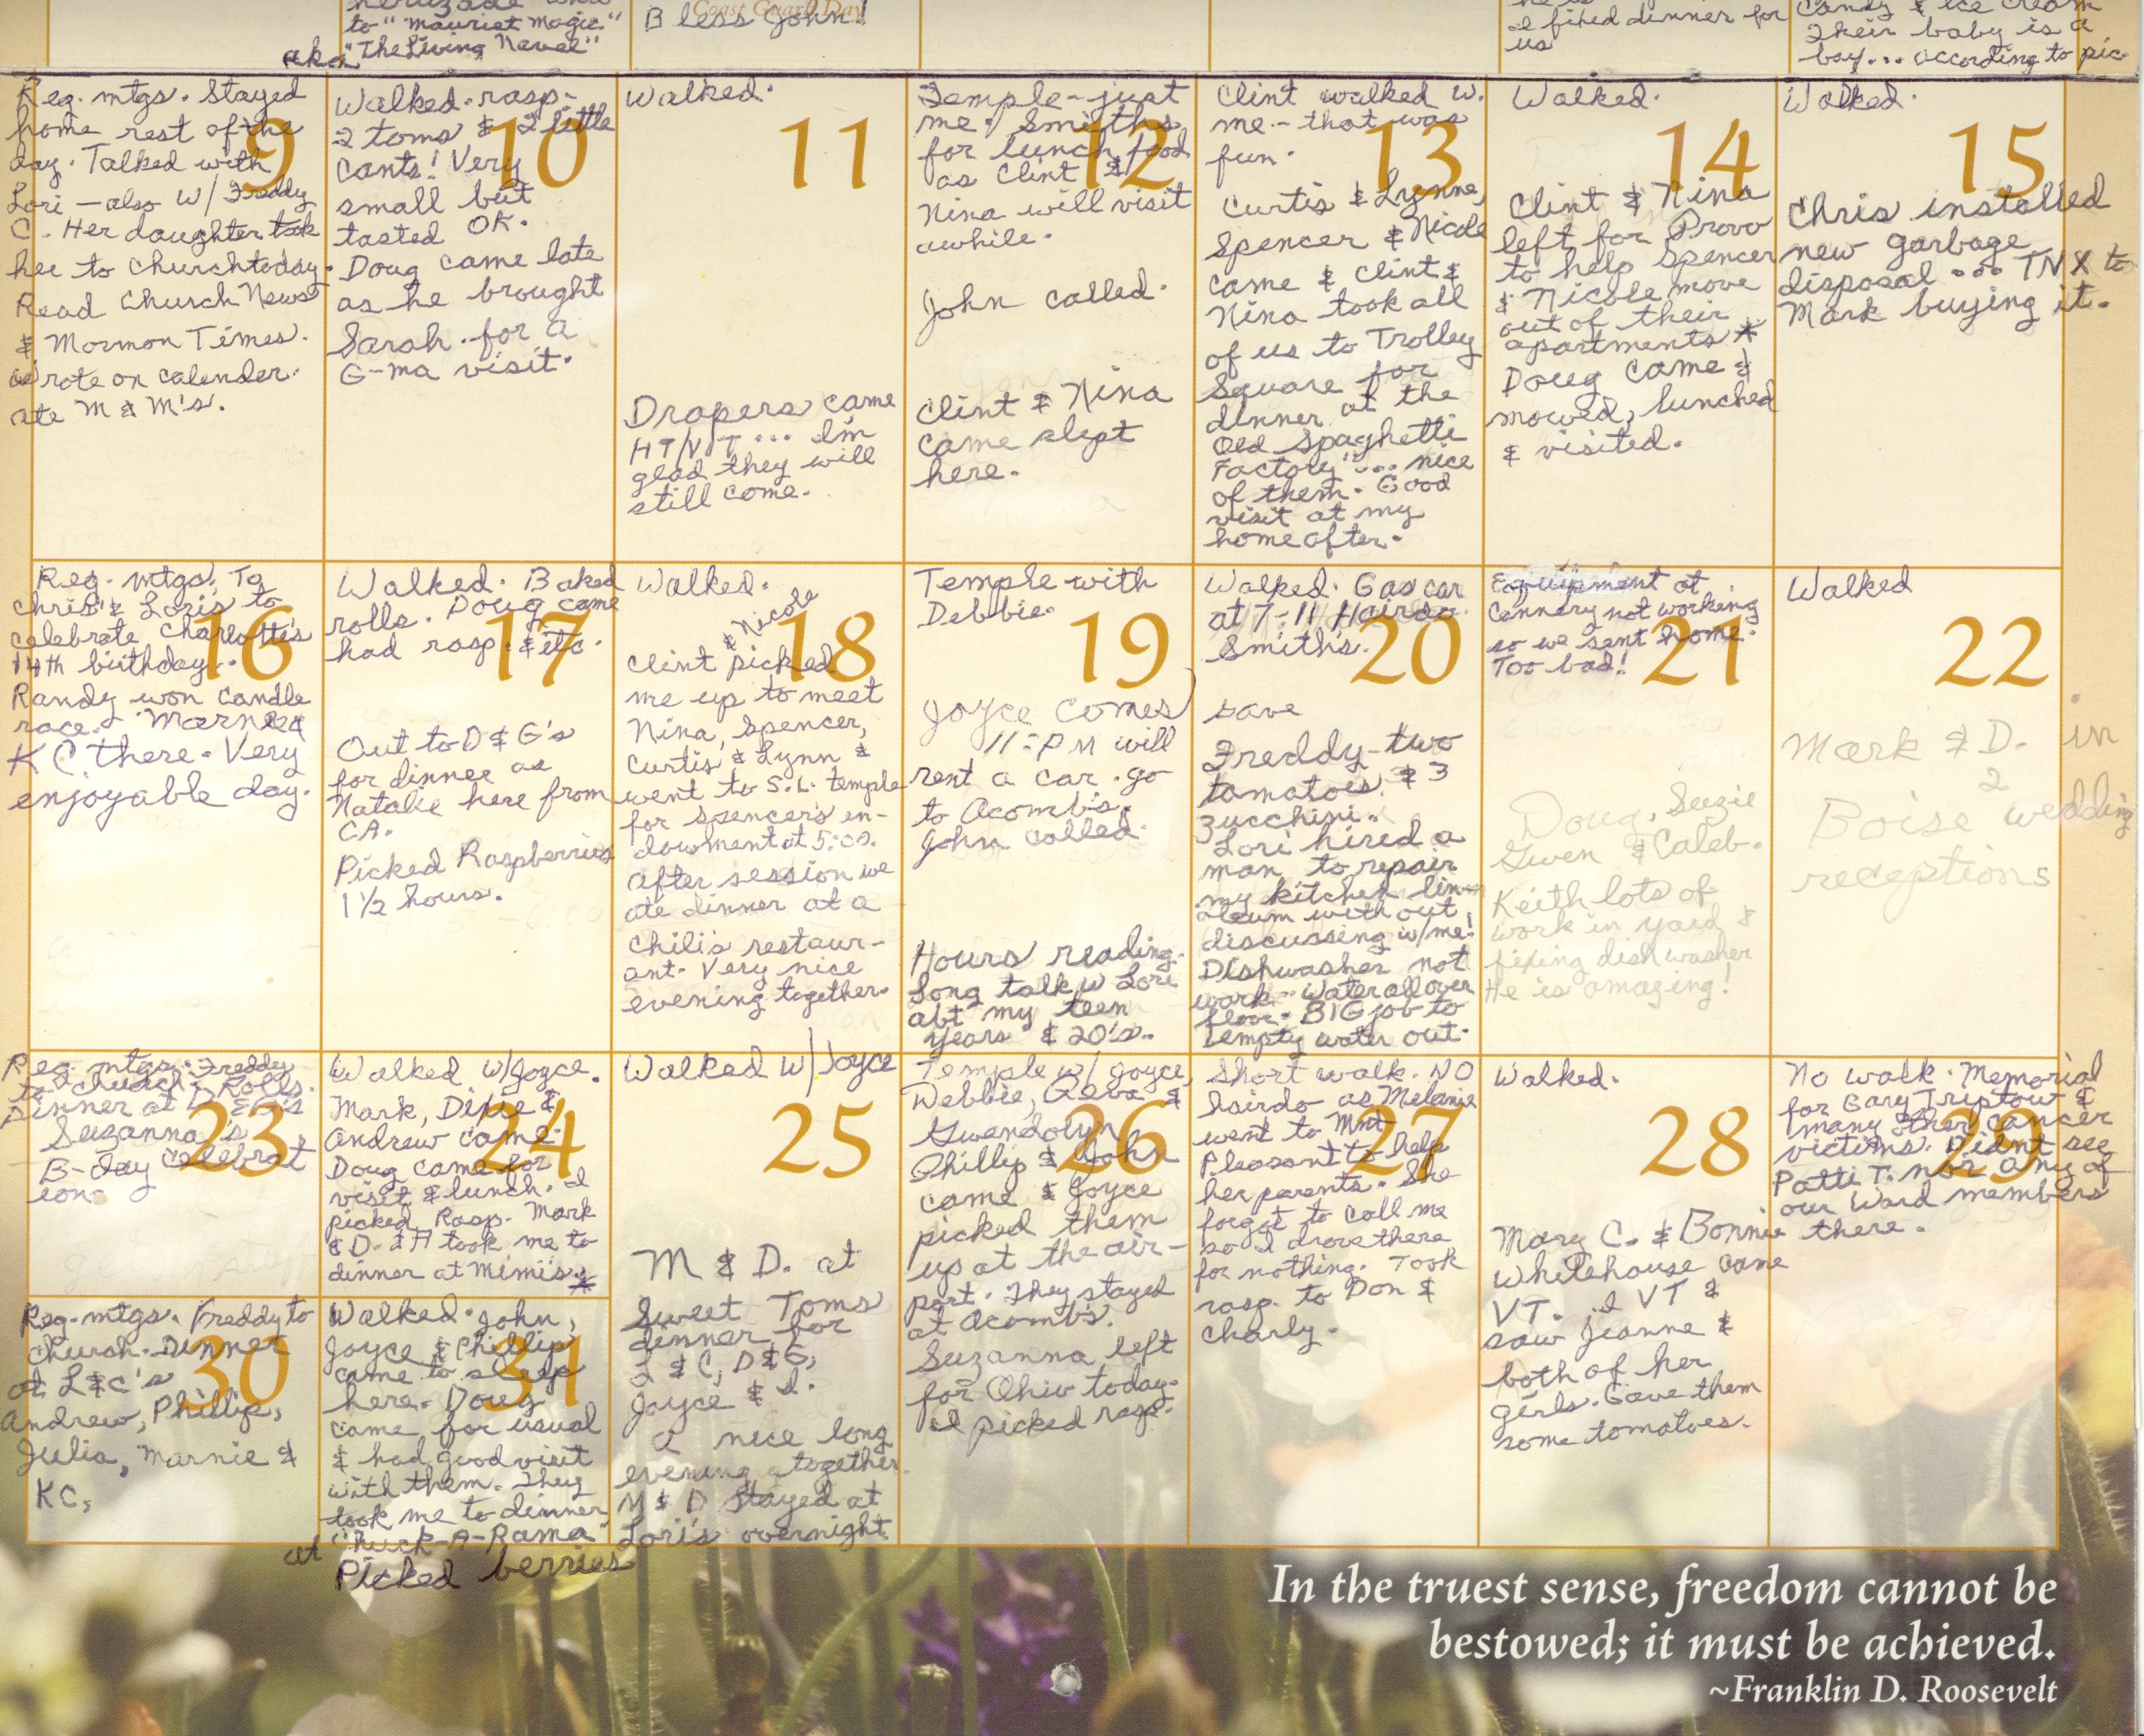 to "Mauriat Magic."
aka "The Living Navel"
Coast Guard Day
Bless John!
I fixed dinner for
us
Candy & ice cream
Their baby is a
boy... according to pic.
Reg. mtgs. Stayed
home rest of the
day. Talked with
Lori – also w/ Freddy
C. Her daughter took
her to church today.
Read Church News
& Mormon Times.
Wrote on calender.
ate M & M's.
9
Walked. rasp-
2 toms & 2 little
cants! Very
small but
tasted OK.
Doug came late
as he brought
Sarah. for a
G-ma visit.
10
Walked.
11
Drapers came
HT/VT... I'm
glad they will
still come.
Temple – just
me. Smiths
for lunch food
as Clint &
Nina will visit
awhile.
12
John called.
Clint & Nina
came slept
here.
Clint walked w.
me – that was
fun.
13
Curtis & Lynne,
Spencer & Nicole
came & Clint &
Nina took all
of us to Trolley
Square for
dinner at the
Old Spaghetti
Factory"... nice
of them. Good
visit at my
home after.
Walked.
14
Clint & Nina
left for Provo
to help Spencer
& Nicole move
out of their
apartments *
Doug came &
mowed, lunched
& visited.
Walked.
15
Chris installed
new garbage
disposal ... TNX to
Mark buying it.
Reg. mtgs. To
Chris & Lori's to
celebrate Charlotte's
14th birthday..
Randy won candle
race. Marnie &
KC there. Very
enjoyable day.
16
Walked. Baked
rolls. Doug came
had rasp. & etc.
17
Out to D & G's
for dinner as
Natalie here from
CA.
Picked Raspberries
1 ½ hours.
Walked.
18
& Nicole
Clint picked
me up to meet
Nina, Spencer,
Curtis & Lynn &
went to S.L. temple
for Spencer's en-
dowment at 5:00.
after session we
ate dinner at a
Chili's restaur-
ant. Very nice
evening together.
Temple with
Debbie.
19
Joyce comes
11:PM will
rent a car. go
to Acomb's.
John called.
Hours reading.
Long talk w Lori
abt my teen
years & 20's..
Walked. Gas car
at 7-11 Hairdo.
Smith's.
20
save
Freddy – two
tomatoes & 3
zucchini..
Lori hired a
man to repair
my kitchen lin-
oleum with out
discussing w/me!
Dishwasher not
work.. Water all over
floor. BIG job to
empty water out.
Equipment at
Cannery not working
so we sent home.
Too bad!
21
Doug, Suzie
Gwen & Caleb.
Keith lots of
work in yard &
fixing dishwasher
He is amazing!
Walked
22
Mark & D. in
2
Boise wedding
receptions
Reg. mtgs. Freddy
to church. Rolls.
Dinner at D
Suzanna's
B-day celebrat
ion.
23
Walked w/Joyce.
Mark, Dixie &
Andrew came.
Doug came for
visit & lunch. I
picked Rasp. Mark
& D. & A took me to
dinner at Mimi's. *
24
Walked w/ Joyce
25
M & D. at
Sweet Toms
dinner for
L & C, D & G,
Joyce & I.
A nice long
evening together
M & D stayed at
Lori's overnight.
Temple w/ Joyce,
Debbie, Reva &
Gwendolyn
26
Phillip & John
came & Joyce
picked them
up at the air-
port. They stayed
at Acomb's.
Suzanna left
for Ohio today.
I picked rasp.
Short walk. NO
hairdo as Melanie
went to Mnt
Pleasant to help
her parents. She
forgot to call me
so I drove there
for nothing. Took
rasp. to Don &
Charly.
27
Walked.
28
Mary C. & Bonnie
Whitehouse came
VT. I VT &
saw Jeanne &
both of her
girls. Gave them
some tomatoes.
No walk. Memorial
for Gary Triptow &
many other cancer
victims. Didn't see
Patti T. nor any of
our Ward members
there.
29
Reg. mtgs. Freddy to
church. Dinner
at L & C's
Andrew, Phillip,
Julia, Marnie &
KC,
30
Walked. John,
Joyce & Phillip
came to sleep
here. Doug
came for usual
& had good visit
with them. They
took me to dinner
at "Chuck-A-Rama"
Picked berries
31
In the truest sense, freedom cannot be
bestowed; it must be achieved.
~Franklin D. Roosevelt